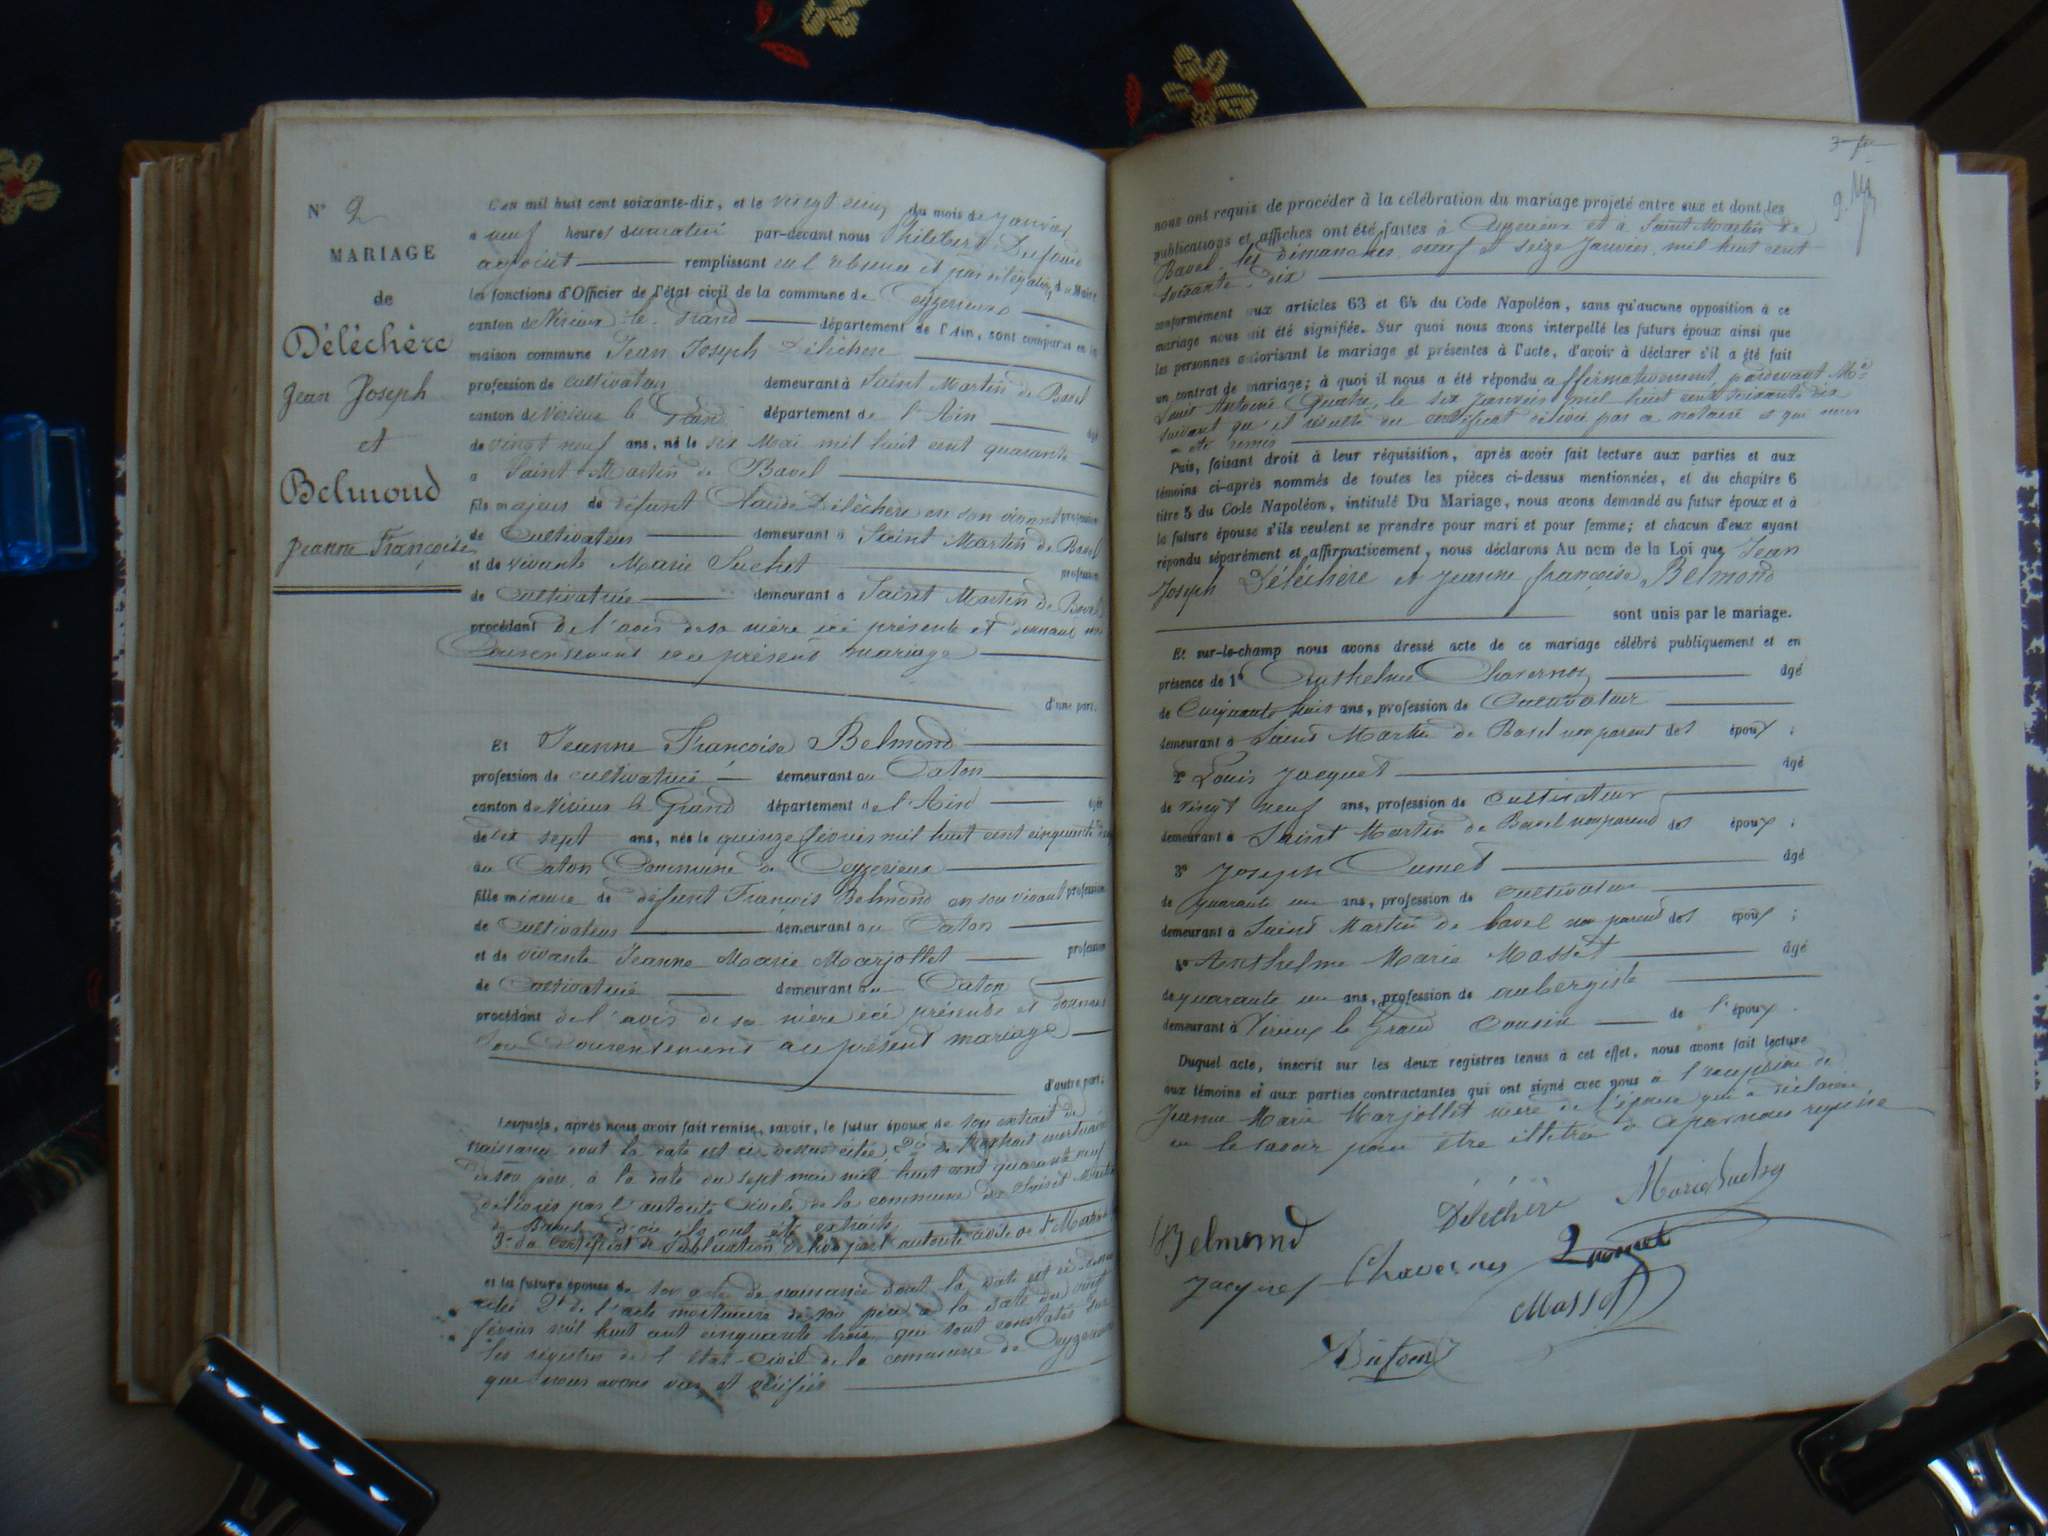 N° 2
MARIAGE
de
Déléchère
Jean Joseph
et
Belmond
Jeanne Françoise
L'an mil huit cent soixante-dix, et le vingt du mois de janvier
a neuf heures du matin par-devant nous Philibert Dufour
adjoint remplissant en l'absence et par délégation du Maire
les fonctions d'Officier de l'état civil de la commune de Ceyzerieux
canton de Virieux le Grand département de l'Ain, sont comparus en la
maison commune Jean Joseph Déléchère
profession de cultivateur demeurant à Saint Martin de Bavel
canton de Virieux le Grand département de l'Ain âgé
de vingt neuf ans, né le six Mai mil huit cent quarante
a Saint Martin de Bavel
fils majeur de défunt Claude Déléchère en son vivant profession
de Cultivateur demeurant à Saint Martin de Bavel
et de vivante Marie Suchet profession
de Cultivatrice demeurant à Saint Martin de Bavel
procédant de l'avis de sa mère ici présente et donnant son
Consentement au présent mariage
d'une part.
Et Jeanne Françoise Belmond
profession de cultivatrice demeurant au Caton
canton de Virieux le Grand département de l'Ain âgée
de dix sept ans, née le quinze février mil huit cent cinquante
au Caton Commune de Ceyzerieux
fille mineure de défunt François Belmond en son vivant profession
de Cultivateur demeurant au Caton
et de vivante Jeanne Marie Marjollet profession
de Cultivatrice demeurant au Caton
procédant de l'avis de sa mère ici présente et donnant
son Consentement au présent mariage
d'autre part.
Lesquels, après nous avoir fait remise, savoir, le futur époux de son extrait de
naissance dont la date est ci-dessus citée 2° de l'extrait mortuaire
de son père, à la date du sept mai mil huit cent quarante neuf
délivrés par l'autorité Civile de la commune de Saint Martin
de Bavel, d'où ils ont été extraits
3° du certificat de Publication délivré par l'autorité civile de St Martin
et la future épouse de son acte de naissance dont la date est ci dessus
citée 2° de l'acte mortuaire de son père à la date du vingt
février mil huit cent cinquante trois qui sont constatés sur
les registres de l'état-civil de la commune de Ceyzerieux
que nous avons vus et vérifiés
nous ont requis de procéder à la célébration du mariage projeté entre eux et dont les
publications et affiches ont été faites à Ceyzerieux et à Saint Martin de
Bavel les dimanches neuf et seize Janvier mil huit cent
soixante-dix
conformément aux articles 63 et 64 du Code Napoléon, sans qu'aucune opposition à ce
mariage nous ait été signifiée. Sur quoi nous avons interpellé les futurs époux ainsi que
les personnes autorisant le mariage et présentes à l'acte, d'avoir à déclarer s'il a été fait
un contrat de mariage; à quoi il nous a été répondu affirmativement, pardevant Me
Louis Antoine le six janvier mil huit cent soixante dix
suivant qu'il résulte du certificat délivré par ce notaire et qui nous
a été remis
Puis, faisant droit à leur réquisition, après avoir fait lecture aux parties et aux
témoins ci-après nommés de toutes les pièces ci-dessus mentionnées, et du chapitre 6
titre 5 du Code Napoléon, intitulé Du Mariage, nous avons demandé au futur époux et à
la future épouse s'ils veulent se prendre pour mari et pour femme; et chacun d'eux ayant
répondu séparément et affirmativement, nous déclarons Au nom de la Loi que Jean
Joseph Déléchère et Jeanne françoise Belmond
sont unis par le mariage.
Et sur-le-champ nous avons dressé acte de ce mariage célébré publiquement et en
présence de 1° Anthelme Chavernoz âgé
de Cinquante trois ans, profession de Cultivateur
demeurant à Saint Martin de Bavel non parent des époux ;
2° Louis Jacquet âgé
de vingt neuf ans, profession de Cultivateur
demeurant à Saint Martin de Bavel non parent des époux ;
3° Joseph âgé
de quarante un ans, profession de cultivateur
demeurant à Saint Martin de bavel non parent des époux ;
4° Anthelme Marie Masset âgé
de quarante un ans, profession de aubergiste
demeurant à Virieux le Grand Cousin de l'époux.
Duquel acte, inscrit sur les deux registres tenus à cet effet, nous avons fait lecture
aux témoins et aux parties contractantes qui ont signé avec nous à l'exception de
Jeanne Marie Marjollet mère de l'épouse qui a déclaré
ne le savoir pour être illettrée de ce par nous requise
Déléchère Marie Suchet
Belmond
Jacquet Chavernoz
Massot
Dufour